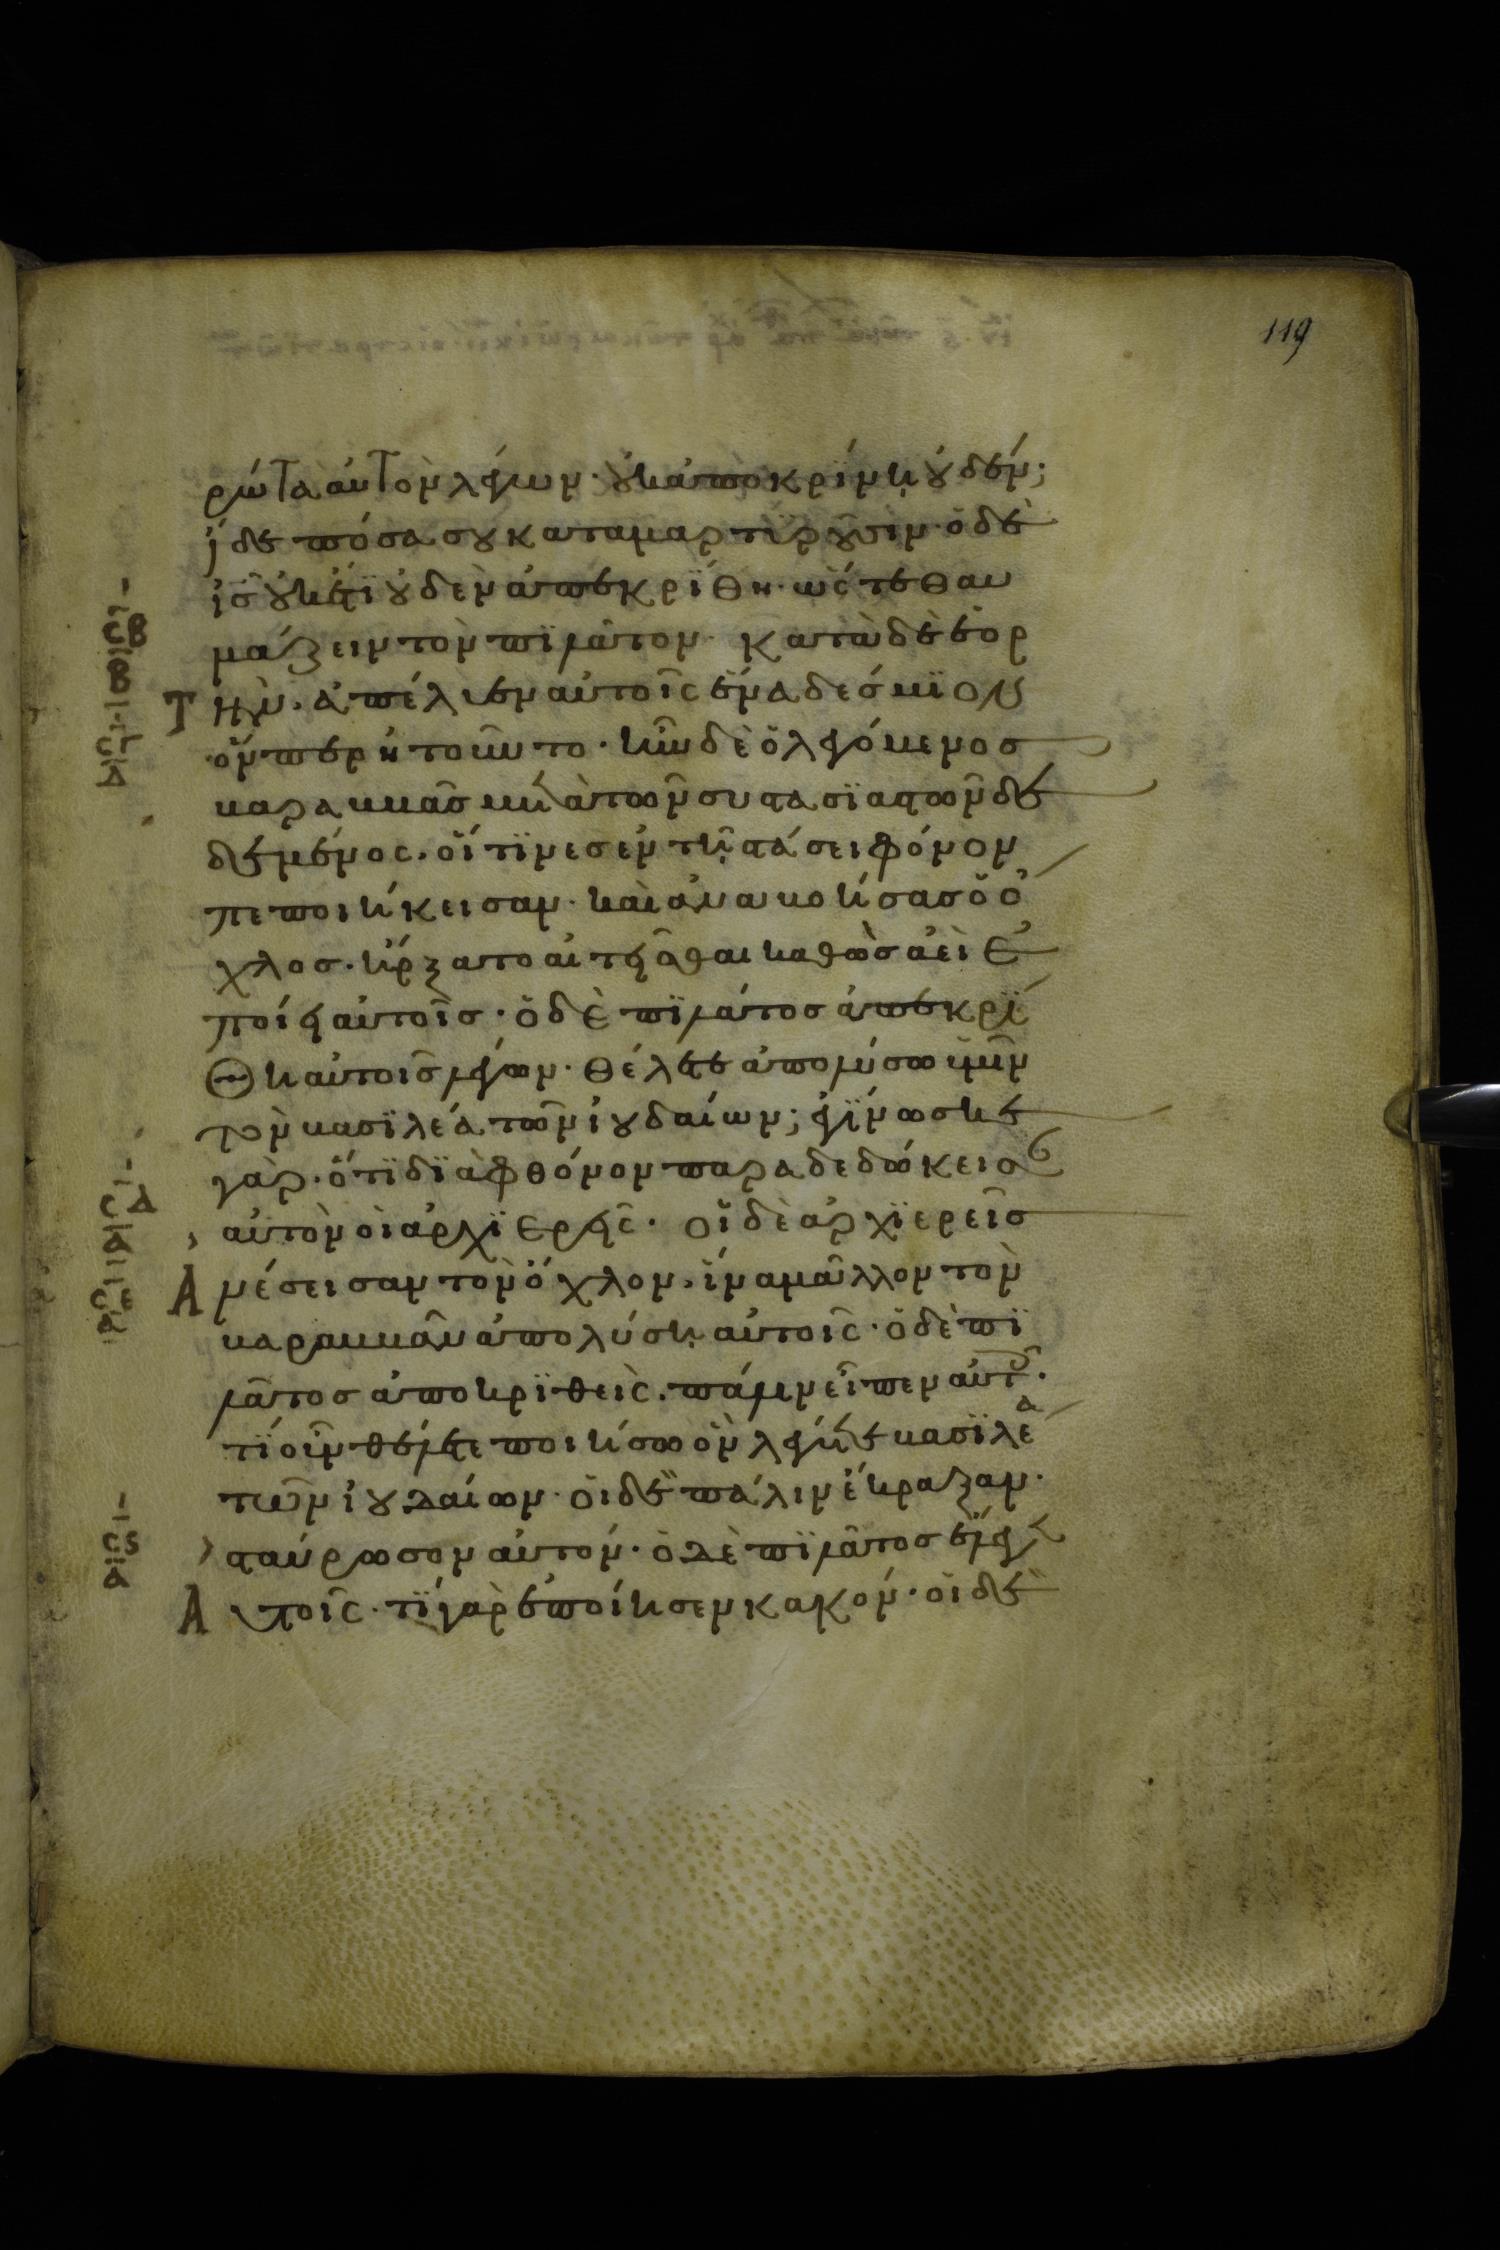 119
ρώτα αὐτὸν λέγων· οὐκ ἀποκρίνῃ οὐδέν;
ἴδε πόσα σου καταμαρτϋροῦσιν· ὁ δὲ
ἰς̅ οὐκέτϊ οὐδὲν ἀπεκρίθη· ὥστε θαυ
μάζειν τὸν πϊλάτον· κατὰ δὲ ἑορ
Τ
τὴν· ἀπέλυεν αὐτοῖς ἕνα δέσμϊον
ὅνπερ ἠτοῦντο· ἦν δὲ ὁ λεγόμενος
βαραββᾶς μετὰ τῶν συστασϊαστῶν δε
δεμένος· οἵτϊνες ἐν τῇ στάσει φόνον
πεποιήκεισαν· καὶ ἀναβοήσας ὁ ὄ
χλος· ἤρξατο αἰτεῖσθαι καθὼς ἀεὶ ἐ
ποίει αὐτοῖς· ὁ δὲ πϊλάτος ἀπεκρί
θη αὐτοῖς λέγων· θέλετε ἀπολύσω ὑμῖν
τὸν βασϊλέα τῶν ἰουδαίων; ἐγίνωσκε
γὰρ· ὅτϊ δϊὰ φθόνον παραδεδώκεισαν
αὐτὸν οἱ ἀρχϊερεῖς· οἱ δὲ ἀρχϊερεῖς
Α
νέσεισαν τὸν ὄχλον· ἵνα μᾶλλον τὸν
βαραββᾶν ἀπολύσῃ αὐτοῖς· ὁ δὲ πϊ
λᾶτος ἀποκρϊθεὶς· πάλιν εἶπεν αὐτοῖς·
τί οὖν θέλετε ποιήσω ὃν λέγετε βασϊλέα
τῶν ἰουδαίων· οἱ δὲ πάλιν ἔκραξαν·
σταύρωσον αὐτόν· ὁ δὲ πϊλᾶτος ἔλεγεν
Α
υτοῖς· τί γὰρ ἐποίησεν κακόν· οἱ δὲ
σβ
β
σγ
δ
σδ
α
σε
σς
α